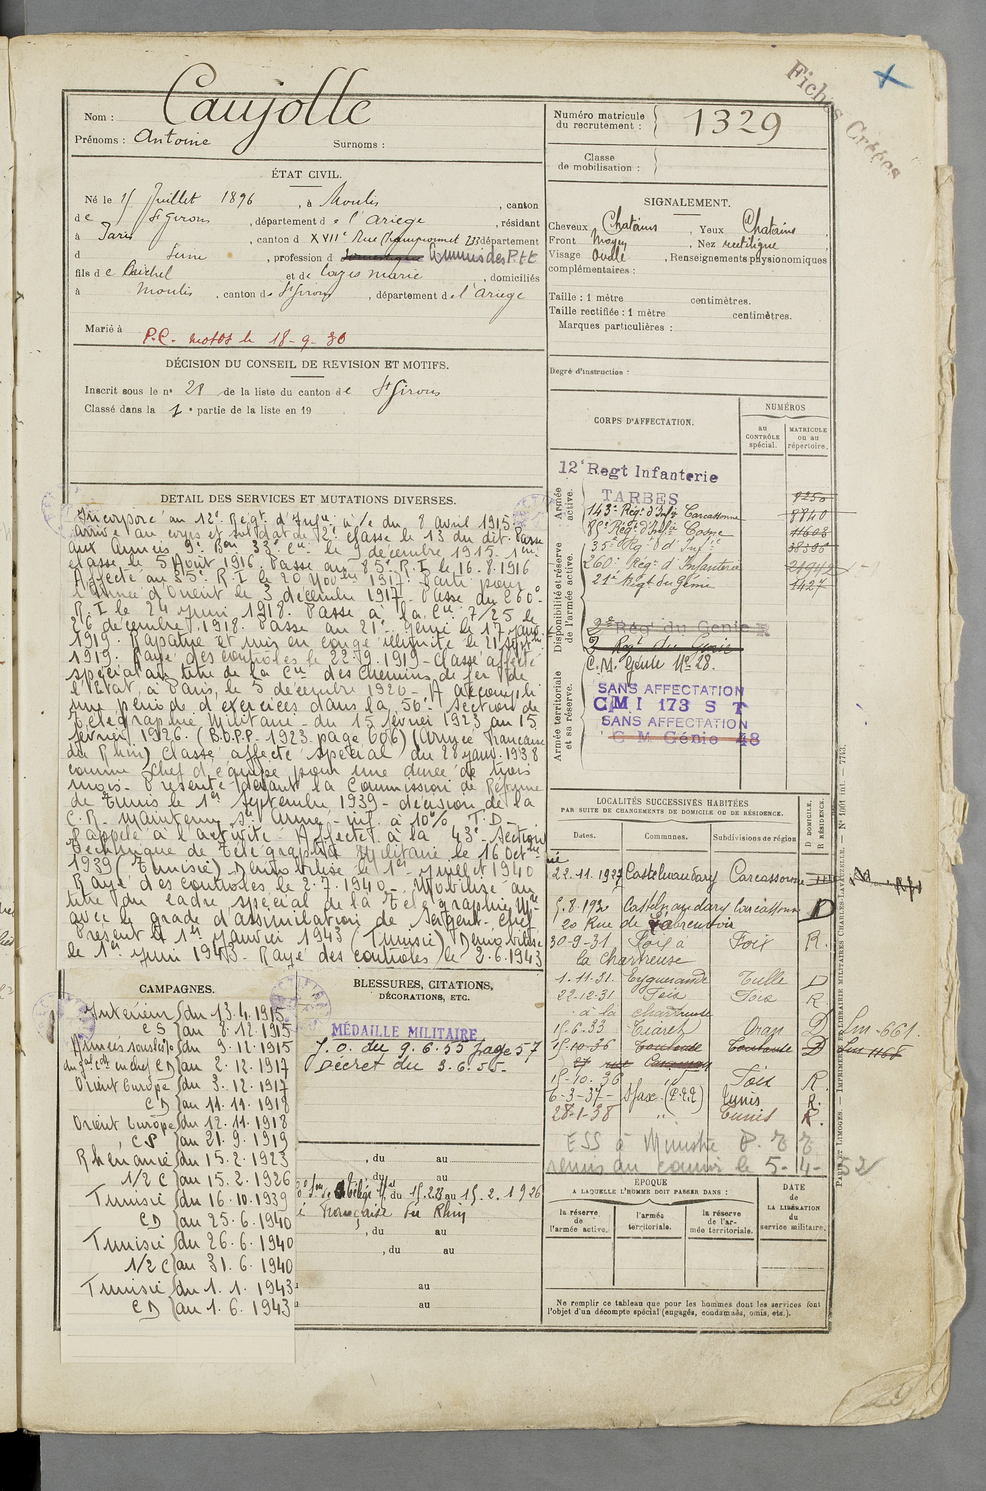 Fiches Créées
Nom : Caujolle
Prénoms : Antoine Surnoms :
Numéro matricule du recrutement : 1329
Classe de mobilisation :
ÉTAT CIVIL.
Né le 15 Juillet 1896, à Moulis, canton
de St Girons, département de l'Ariège, résidant
à Paris, canton d XVIIe Rue Championnet 233 département
d Seine, profession d Commis des P.T.T.
fils de Michel et de Loges Marie, domiciliés
à Moulis, canton de St Girons, département de l'Ariège
Marié à
P.C. motos le 18-9-30
DÉCISION DU CONSEIL DE REVISION ET MOTIFS.
Inscrit sous le no 21 de la liste du canton de St Girons
Classé dans la 1e partie de la liste en 19
SIGNALEMENT.
Cheveux Chatains Yeux Chatains
Front Moyen, Nez rectiligne
Visage Ovale, Renseignements physionomiques
complémentaires :
Taille : 1 mètre centimètres.
Taille rectifiée : 1 mètre centimètres.
Marques particulières :
Degré d'instruction :
CORPS D'AFFECTATION.
NUMÉROS
AU CONTRÔLE spécial.
MATRICULE ou au répertoire.
Armée active.
12e Regt Infanterie
TARBES 8250
143e Rég. d'Infie Carcassonne 8840
85e Rég. d'Infie Cosne 11608
Disponibilité et réserve de l'armée active.
35e Rég. d'Infie 38386
260e Régt d'Infanterie
21e Régt du Génie 1427
2e Rég. du Génie
2e Rég. du Génie
C.M. Génie No 28.
Armée territoriale et sa réserve.
SANS AFFECTATION
CMI 173 S T
SANS AFFECTATION
C M Génie 48
DETAIL DES SERVICES ET MUTATIONS DIVERSES.
Incorporé au 12e Régt d'Infie à/c du 8 avril 1915-
arrivé au corps et soldat de 2e classe le 13 du dit. Passe
aux Armées 9e Bon 33e Cie le 9 décembre 1915. 1ère
classe le 5 Août 1916. Passe au 85e R.I le 16.8.1916
Affecté au 35e R.I le 20 Novbre 1917. Parti pour
l'armée d'Orient le 3 décembre 1917- Passe au 260e
R.I le 24 juin 1918. Passe à la Cie 7/25 le
26 décembre 1918. Passe au 21e Génie le 17 janv.
1919. Rapatrié et mis en congé illimité le 21 septbre
1919. Rayé des contrôles le 22.9.1919- Classé affecté
spécial au titre de la Cie des Chemins de fer de
l'Etat, à Paris, le 5 décembre 1920- A accompli
une période d'exercices dans la 56e Section de
Télégraphie Militaire- du 15 février 1923 au 15
février 1926. (B.O.P.P. 1923 page 606) (Armée Française
du Rhin) Classé affecté spécial du 28 janv. 1938
comme chef d'équipe pour une durée de trois
mois- Présenté devant la Commission de Réforme
de Tunis le 1er septembre 1939- décision de la
C.R. maintenu Sce Armé- inf. à 10% T.D-
Rappelé à l'activité- Affecté à la 43e Section
Technique de Télégraphie Militaire le 16 Octbre
1939 (Tunisie)- Démobilisé le 1er juillet 1940
Rayé des contrôles le 2.7.1940- Mobilisé au
titre du cadre spécial de la Télégraphie Mre
avec le grade d'assimilation de Sergent-Chef
Présent le 1er janvier 1943 (Tunisie) Démobilisé
le 1er juin 1943- Rayé des contrôles le 2.6.1943
LOCALITÉS SUCCESSIVES HABITÉES
PAR SUITE DE CHANGEMENTS DE DOMICILE OU DE RÉSIDENCE.
Dates. Communes. Subdivisions de région D DOMICILE. R RÉSIDENCE.
22.11.1927 Castelnaudary Carcassonne
5.8.192 Castelnaudary Carcassonne D
20 Rue de l'abreuvoir
30-9-31 Foix à Foix R.
la Chartreuse
1.11.31. Eygurande Tulle D
22-12-31 Foix Foix R
à la chartreuse
15.6.33 Tiaret Oran D Lm-661.
15-10-36 Toulouse Toulouse D Lm 1165
15-10.36 " Foix R.
6-3-37- Sfax. (P.T.T) Tunis R.
28-1-38 " Tunis R.
ESS à Ministre P.T.T
renvis au commis le 5-4-52
CAMPAGNES.
Intérieur du 13.4.1915
CS au 8.12.1915
Armées du 9.12.1915
CD au 2.12.1917
Orient Europe du 3.12.1917
CD au 11.11.1918
Orient Europe du 12.11.1918
CS au 21.9.1919
Rhénanie du 15.2.1923
1/2 C au 15.2.1926
Tunisie du 16.10.1939
CD au 25.6.1940
Tunisie du 26.6.1940
1/2 C au 31.6.1940
Tunisie du 1.1.1943
CD au 1.6.1943
BLESSURES, CITATIONS,
DÉCORATIONS, ETC.
MÉDAILLE MILITAIRE
J.O. du 9.6.55 page 57
Décret du 3.6.55-
, du au
, du au
du 15.2.23 au 15.2.1926
Française du Rhin
, du au
, du au
au
au
ÉPOQUE
A LAQUELLE L'HOMME DOIT PASSER DANS :
la réserve de l'armée active.
l'armée territoriale.
la réserve de l'armée territoriale.
DATE de LA LIBÉRATION du service militaire.
Ne remplir ce tableau que pour les hommes dont les services font
l'objet d'un décompte spécial (engagés, condamnés, omis, etc.).
PARIS ET LIMOGES. — IMPRIMERIE LIBRAIRIE MILITAIRES CHARLES-LAVAUZELLE.